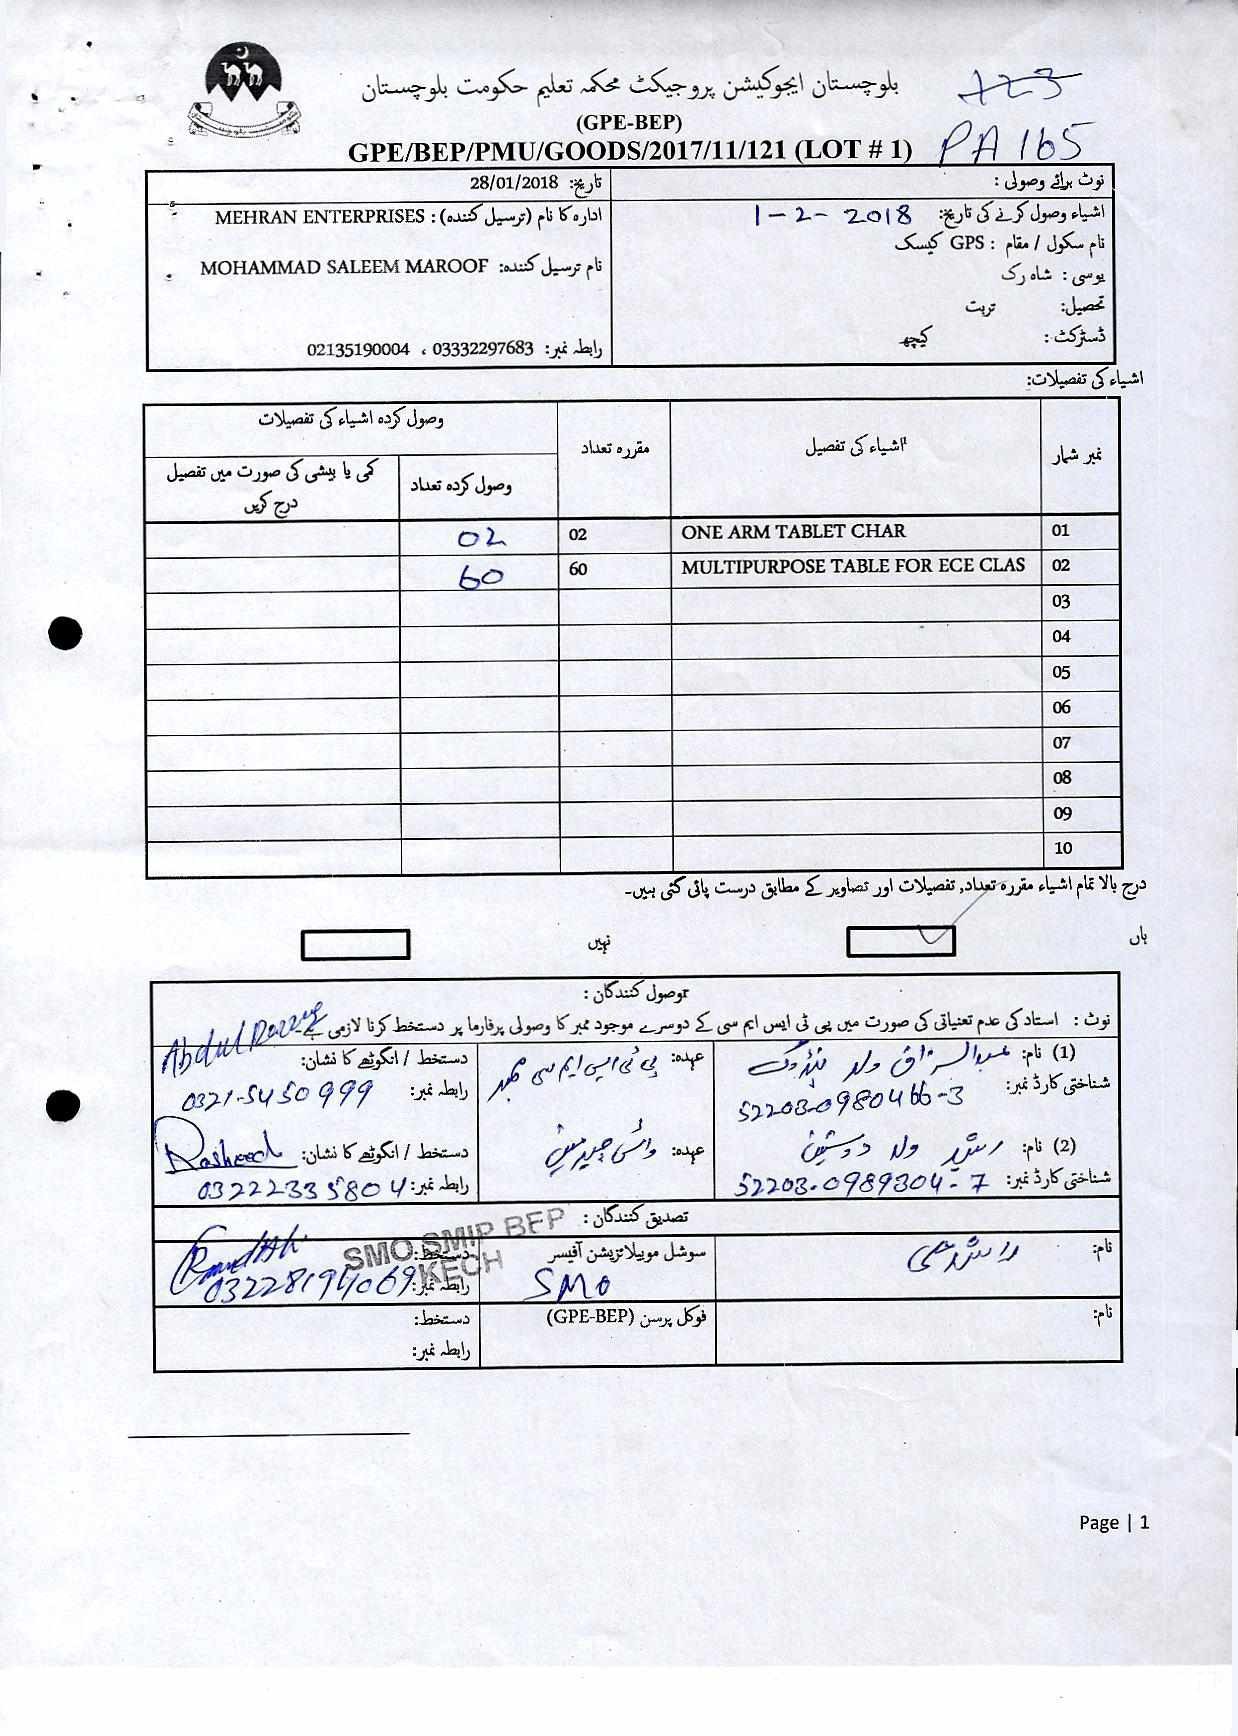 بلوچستان ایجوکیشن پروجیکٹ محکمہ تعلیم حکومت بلوچستان
123
(GPE-BEP)
GPE/BEP/PMU/GOODS/2017/11/121 (LOT # 1) PA 165
نوٹ برائے وصولی :
تاریخ: 28/01/2018
اشیاء وصول کرنے کی تاریخ: 1-2-2018
ادارہ کا نام (ترسیل کنندہ) : MEHRAN ENTERPRISES
نام سکول / مقام : GPS کیسک
نام ترسیل کنندہ: MOHAMMAD SALEEM MAROOF
یوسی : شاہ رک
تحصیل: تربت
ڈسٹرکٹ : کیچھ
رابطہ نمبر: 03332297683 ، 02135190004
اشیاء کی تفصیلات:
نمبر شمار
اشیاء کی تفصیل
مقررہ تعداد
وصول کردہ اشیاء کی تفصیلات
وصول کردہ تعداد
کمی یا بیشی کی صورت میں تفصیل
درج کریں
01 ONE ARM TABLET CHAR 02 02
02 MULTIPURPOSE TABLE FOR ECE CLAS 60 60
03
04
05
06
07
08
09
10
درج بالا تمام اشیاء مقررہ تعداد, تفصیلات اور تصاویر کے مطابق درست پائی گئی ہیں۔
ہاں
نہیں
وصول کنندگان :
نوٹ : استاد کی عدم تعنیاتی کی صورت میں پی ٹی ایس ایم سی کے دوسرے موجود ممبر کا وصولی پرفارما پر دستخط کرنا لازمی ہے۔
(1) نام: عبدالرزاق ولد
عہدہ: پی ٹی ایس ایم سی ممبر
دستخط / انگوٹھے کا نشان: Abdul Razzaq
شناختی کارڈ نمبر: 52203-0980466-3
رابطہ نمبر: 0321-5450999
(2) نام: رشید ولد دوستین
عہدہ: وائس چیئرمین
دستخط / انگوٹھے کا نشان: Rasheed
شناختی کارڈ نمبر: 52203-0989304-7
رابطہ نمبر: 03222335804
تصدیق کنندگان :
SMO SMIP BEP
KECH
نام:
سوشل موبیلائزیشن آفیسر
SMO
دستخط:
رابطہ نمبر: 03228194069
نام:
فوکل پرسن (GPE-BEP)
دستخط:
رابطہ نمبر:
Page | 1